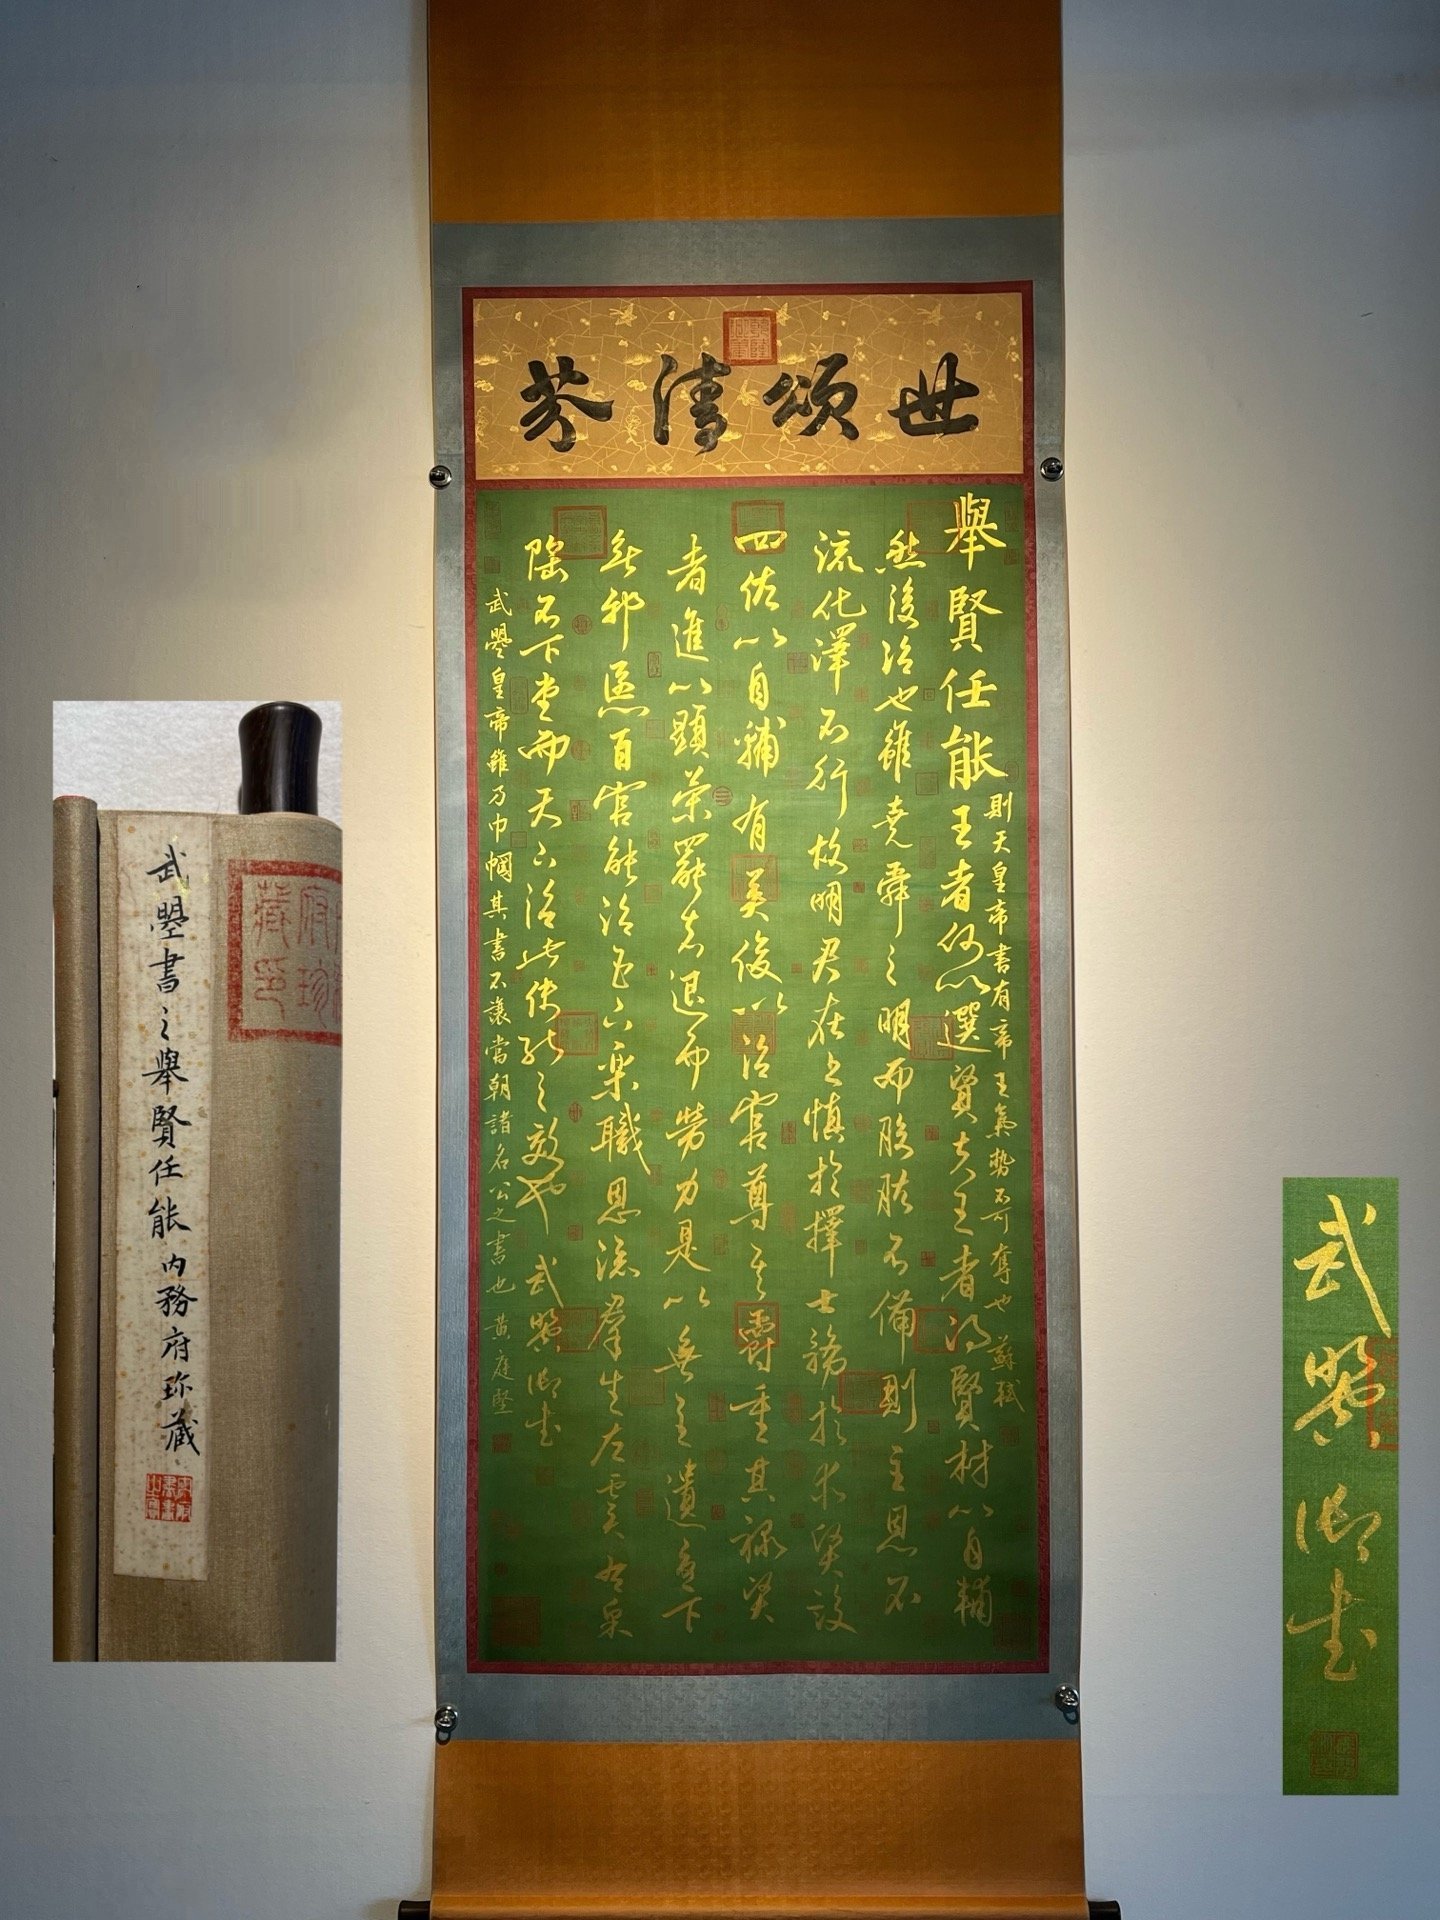 世頌清芬
舉賢任能王者何以選賢夫王者得賢材以自輔
然後治也雖堯舜之明而股肱不備則主恩不
流化澤不行故明君在上慎於擇士務於求賢設
四佐以自輔有英俊以治官尊其爵重其祿賢
者進以顯榮罷者退而勞力是以無主遺憂下
無邪慝百官能治臣下樂職恩流群生左虞右皋
陶不下堂而天下治此使能之效也 武曌御書
則天皇帝書有帝王氣勢不可奪也 蘇軾
武曌皇帝雖乃巾幗其書不讓當朝諸名公之書也 黃庭堅
武曌書之舉賢任能 內務府珎藏
武曌御書